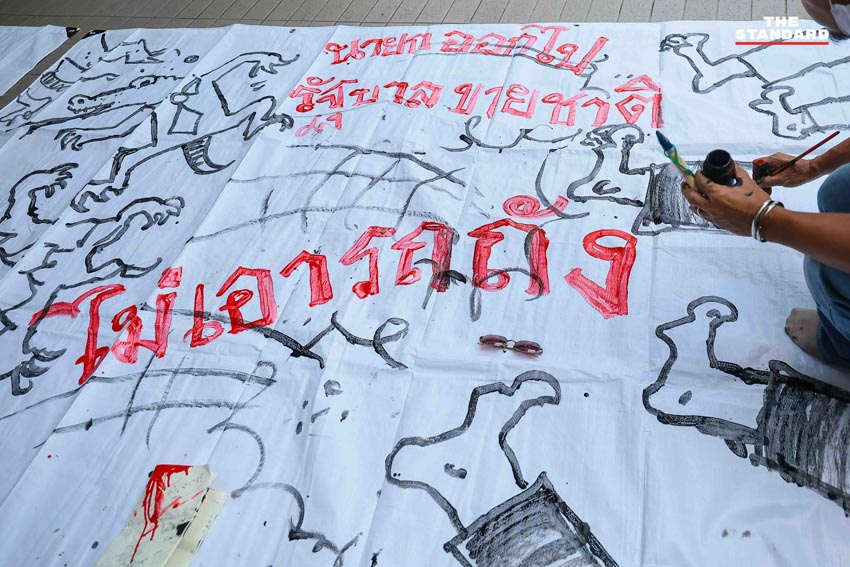 THE
STANDARD
นายก ออกไป
รัฐบาล ขายชาติ
ไม่เอารถถัง